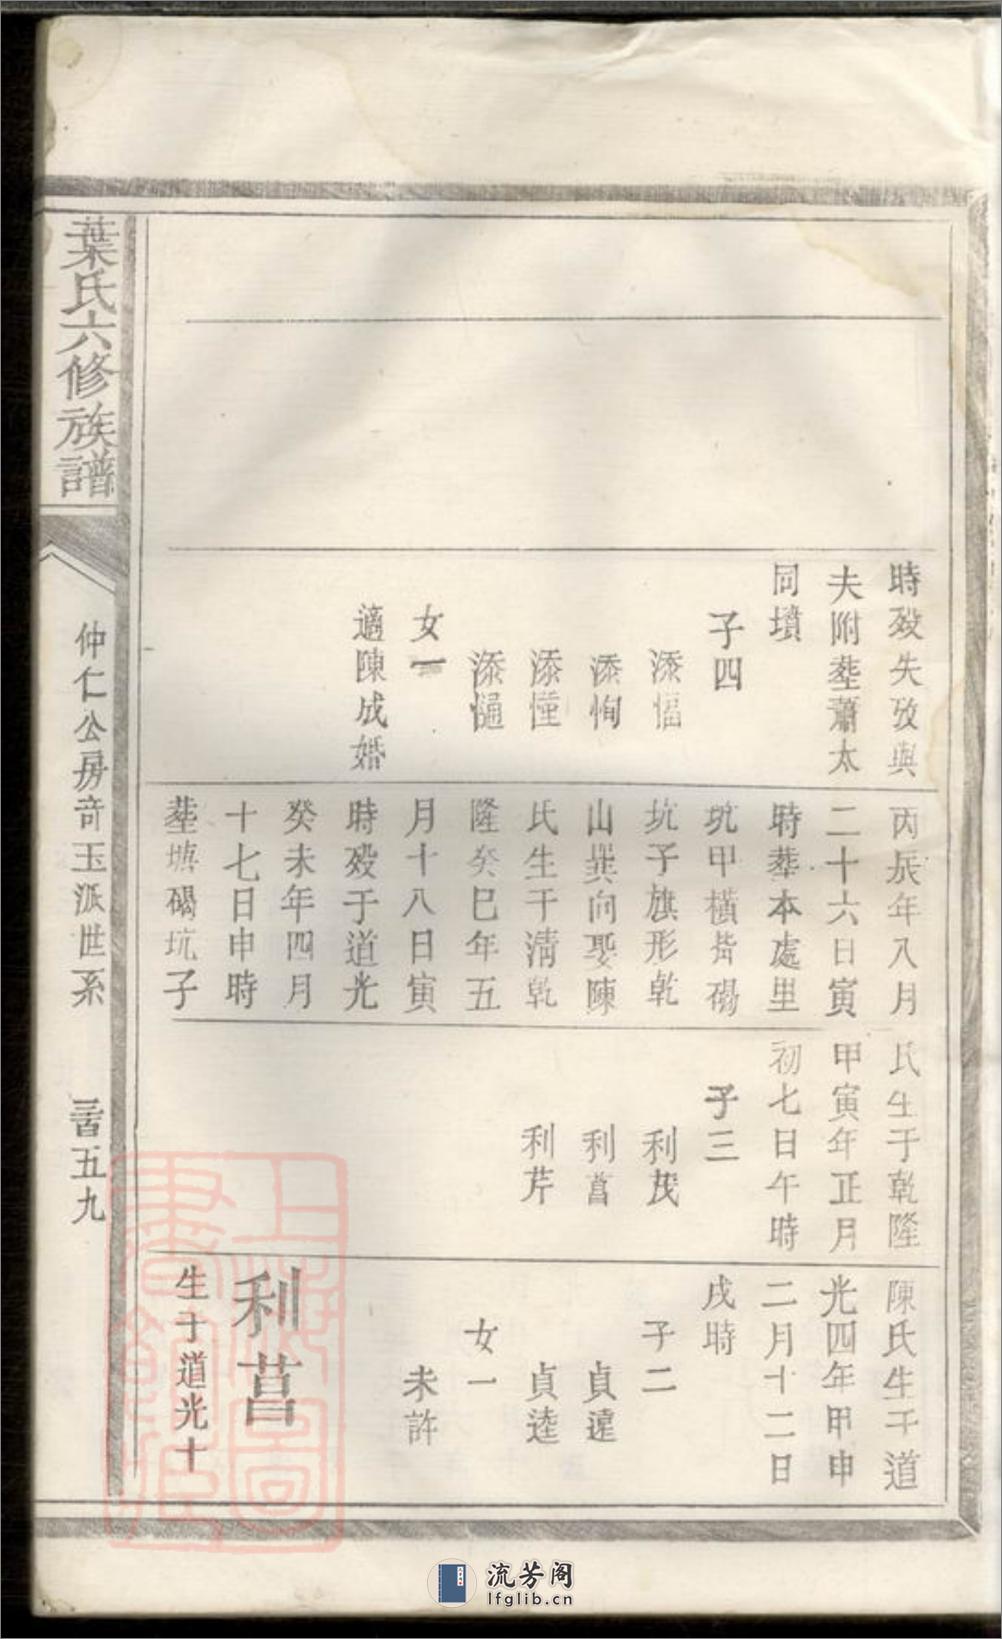 時殁失攷與
夫附塟蕭太
同墳
子四
添愊
添恂
添憧
女一
適陳成婚
丙辰年八月
二十六日寅
時塟本處里
坑甲橫背碭
坑子旗形乾
山巽向娶陳
氏生于清乾
隆癸巳年五
月十八日寅
時殁于道光
癸未年四月
十七日申時
塟塘碭坑子
氏生于乾隆
甲寅年正月
初七日午時
子三
利茂
利菖
利芹
陳氏生于道
光四年甲申
二月十二日
戌時
子二
貞達
貞逵
女一
未許
利菖
生于道光十
葉氏六修族譜
仲仁公房奇玉派世系
三百五九
上海圖
書館藏
流芳阁
lfglib.cn